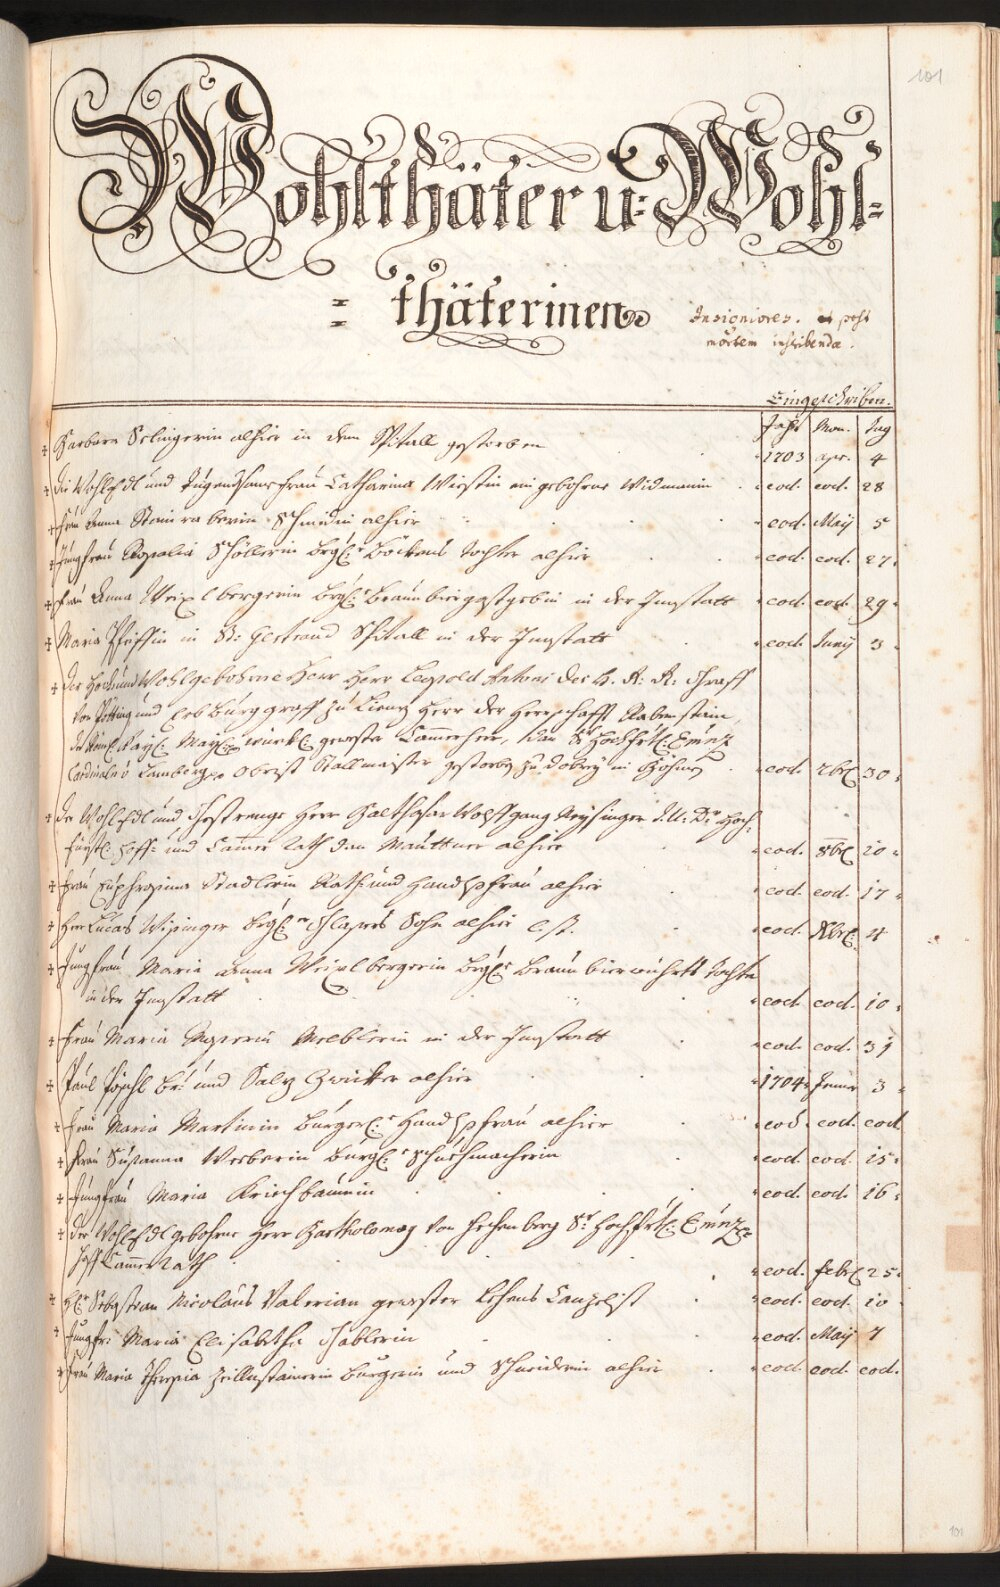 101
Wohlthäter u: Wohl=
= thäterinen
Insigniores. et post
mortem inscribendæ.
Eingeschriben.
Jahr Mon. Tag
+ Barbara Selingerin alhier in dem Spitall gestorben 1703 apr. 4
+ die Wohl Edl und Tugendsame Frau Catharina Wirstin ein gebohrne Widmanin eod. eod. 28
+ Frau Anna Schmidin alhier eod. Maij 5
+ Jungfrau Rosalia Schöllerin brgl: Böckens Tochter alhier eod. eod. 27
+ Frau Anna Weixlbergerin brgl: Braun biergastgebin in der Innstatt eod. eod. 29
+ Maria in St: Gertraud Spitall in der Innstatt eod. Junij 3
+ Der Hoch und Wohlgebohrne Herr Herr Leopold Antoni des H. R: R: Graff
von Pötting und Erb Burggraff zu Lienz Herr der Herrschafft Rabenstain,
der Röm: Kayl: May: würkl: gewester Cammerherr, dan Sr Hochfrtl: Eminz
Cardinals v Lamberg Obrist Stallmaister gestorben zu in Böhmen eod. 7bris 30
+ Der Wohl Edl und Gestrenge Herr Balthasar Wolffgang J: U: D: Hoch=
Fürstl: Hoff= und Cammer Rath dan Mauttner alhier eod. 8bris 20
+ Frau Euphrosina Stadlerin Rath und Handlsfrau alhier eod. eod. 17
+ Herr Lucas Wisinger brgl: Glasers Sohn alhier eod. Xbris 4
+ Jungfrau Maria Anna Weixlbergerin brgl: Braun bierwührtts Tochter
in der Innstatt eod. eod. 10
+ Frau Maria Melblerin in der Innstatt eod. eod. 31
+ Paul Pöschl br: und Salz Zwicker alhier 1704 Jenner 3
+ Frau Maria Martinin Burgerl: Handlsfrau alhier eod. eod. eod
+ Frau Susanna Weberin burgl: Schuchmacherin eod. eod. 15
+ Jungfrau Maria Kriechbaumin eod. eod. 16
+ Der Wohl Edl gebohrne Herr Bartholomæy von Hechenberg Sr Hochfrtl: Eminz
Hoff Cammer Rath eod. febr 25
+ Hr Sebastian Nicolaus Valerian gewester Lehens Canzelist eod. eod. 10
+ Jungfr: Maria Elisabetha Gablerin eod. Maij 7
+ Frau Maria Theresia Zeillnstainerin Burgerin und Schneiderin alhier eod. eod. eod.
101